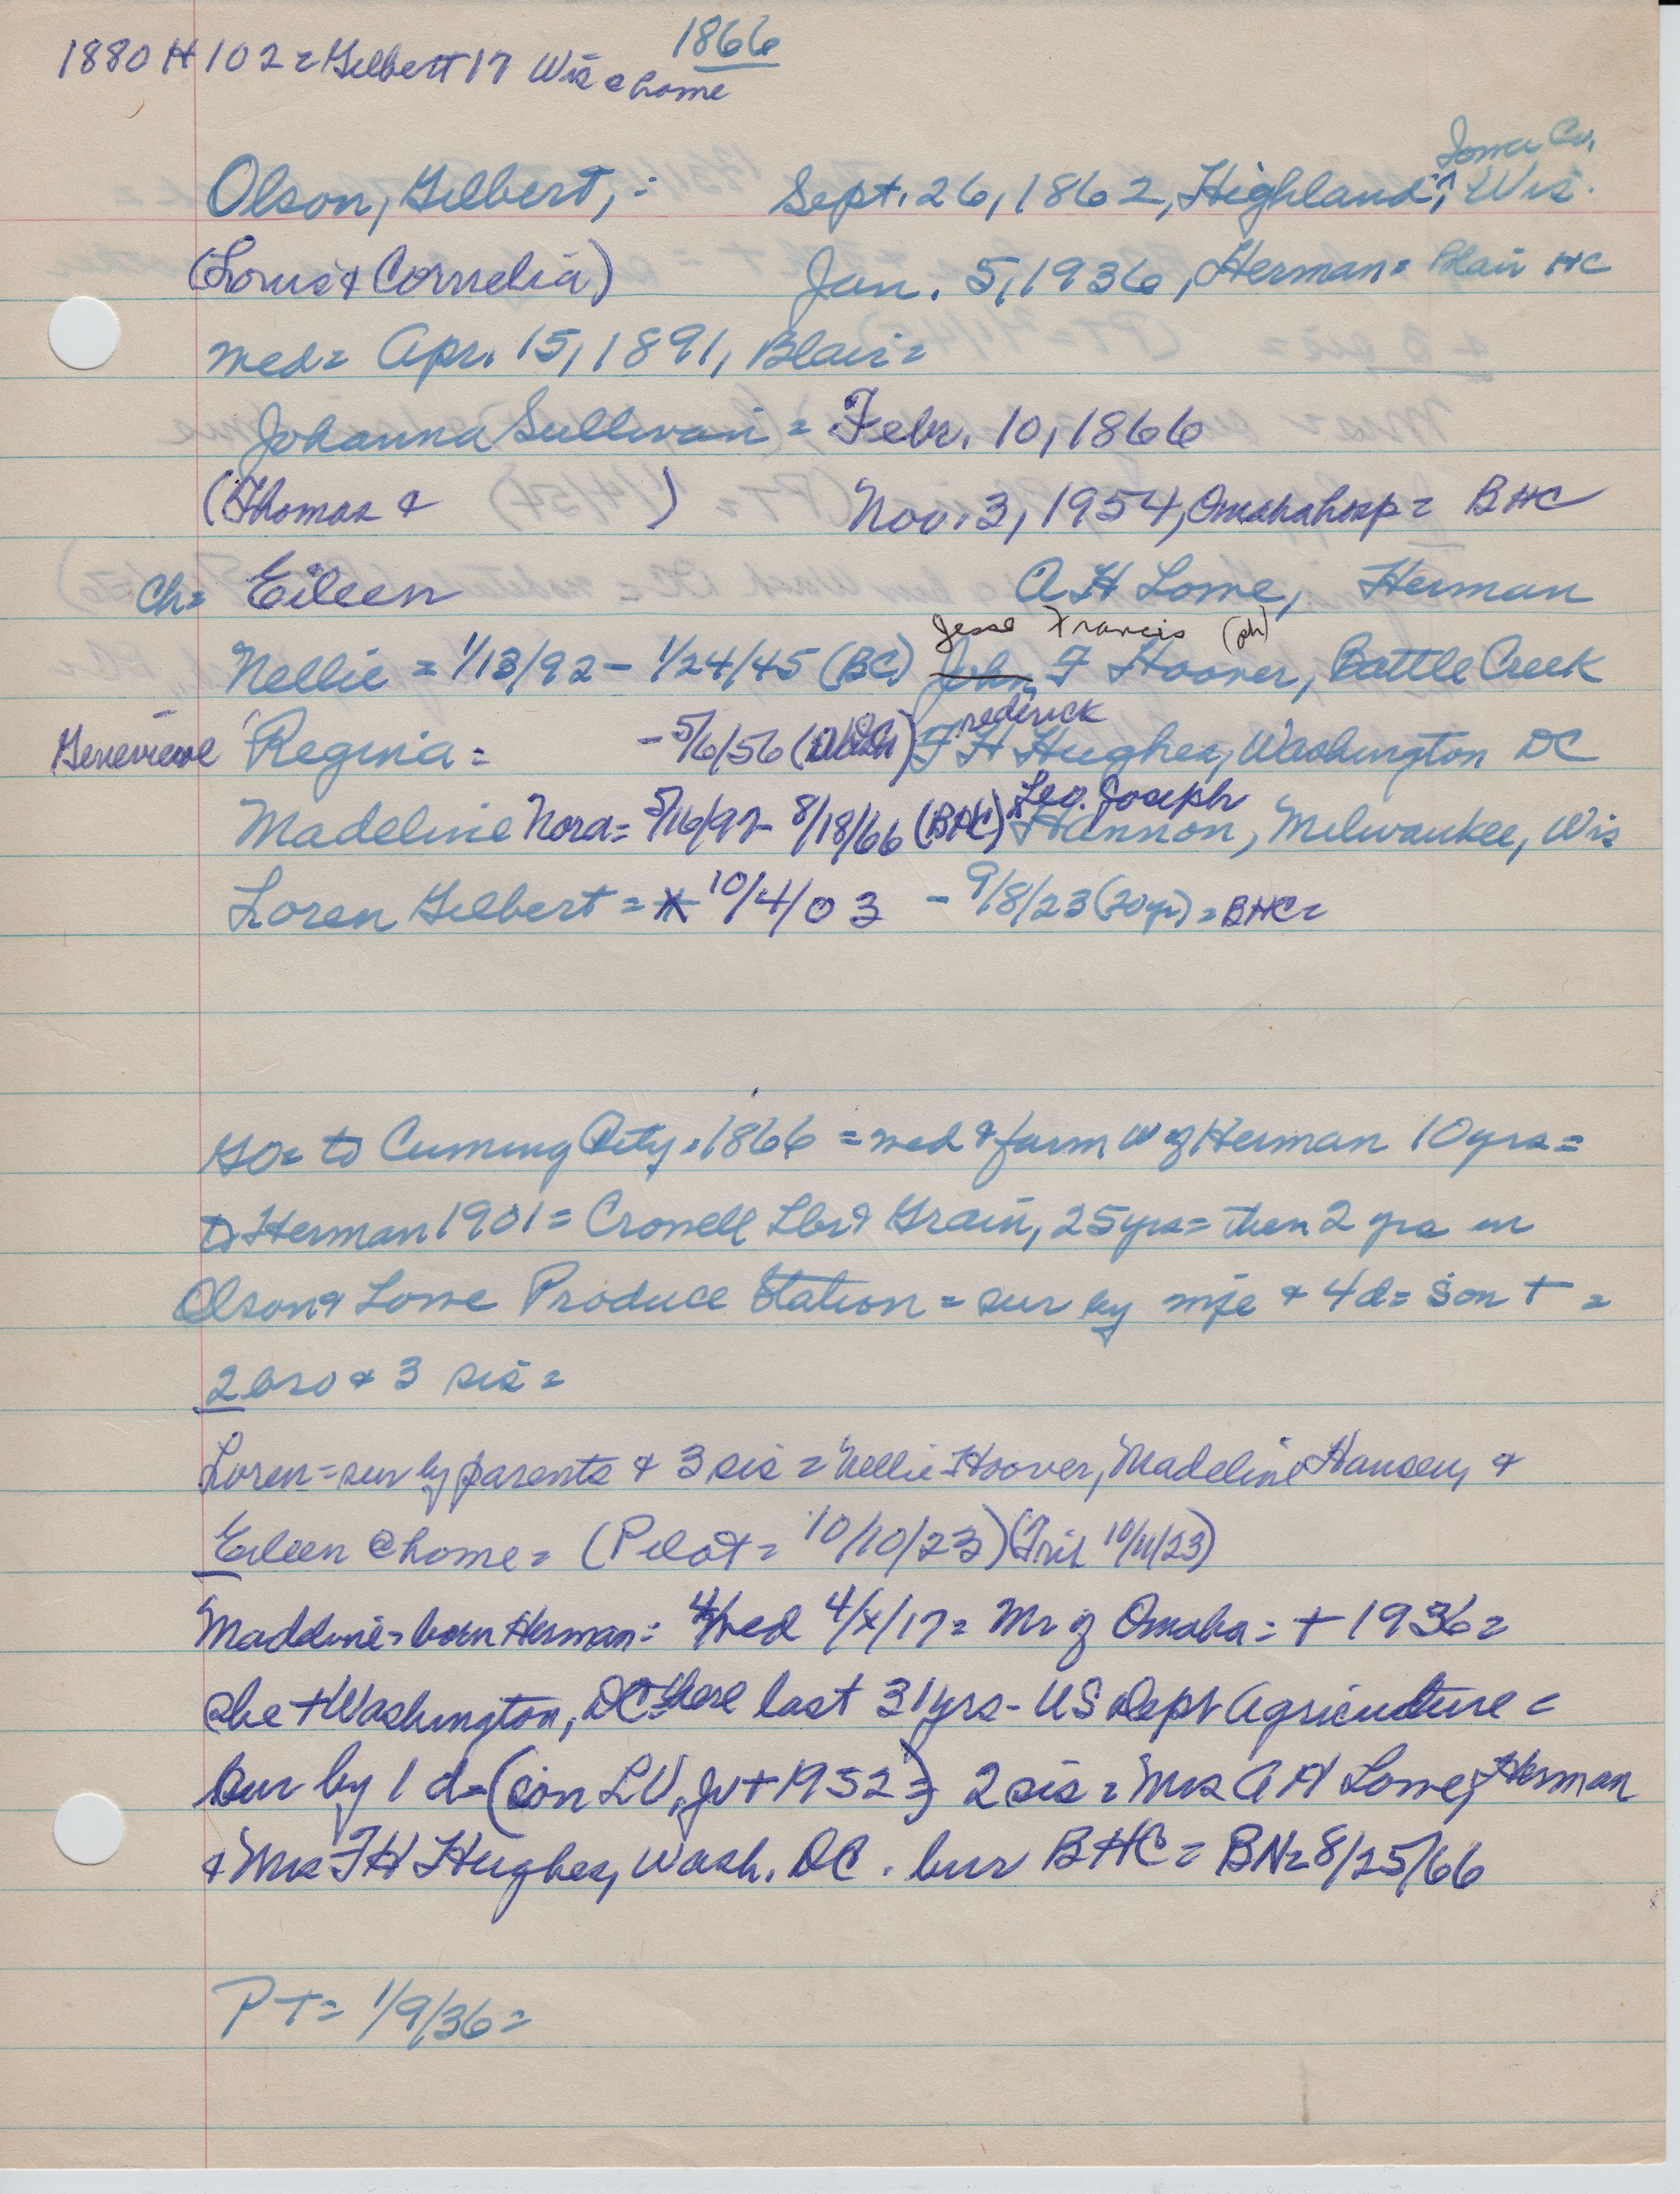 1866
1880 H 102 = Gilbert 17 Wis @ home
Iowa Co.
Olson, Gilbert, : Sept. 26, 1862, Highland, ^, Wis.
(Louis & Cornelia) Jan. 5, 1936, Herman = Blair HC
med = Apr. 15, 1891, Blair =
Johanna Sullivan = Febr. 10, 1866
(Thomas & ) Nov. 3, 1954, Omaha hosp = BHC
Ch = Eileen A H Lowe, Herman
Jesse Francis (ph)
Nellie = 1/13/92 - 1/24/45 (BC) John F Hoover, Battle Creek
Frederick
Genevieve Regina = - 5/6/56 F H Hughes, Washington DC
Leo Joseph
Madeline Nora = 5/16/97 - 8/18/66 (BHC) ^ Hannon, Milwaukee, Wis
Loren Gilbert = 10/4/03 - 9/8/23 (20 yr) = BHC =
to Cuming City = 1866 = med & farm W of Herman 10 yrs =
to Herman 1901 = Crowell Lbr & Grain, 25 yrs = then 2 yrs in
Olson & Lowe Produce Station = sur by wife & 4 d = son + =
2 bro & 3 sis =
Loren = sur by parents & 3 sis = Nellie Hoover, Madeline &
Eileen @ home = (Pilot = 10/10/23) (Trib 10/11/23)
Madeline = born Herman = med 4/x/17 = Mr of Omaha = + 1936 =
she + Washington, DC there last 31 yrs - US Dept Agriculture =
sur by 1 d = (son Jr + 1952) = 2 sis = Mrs A H Lowe, Herman
& Mrs F H Hughes, Wash. DC. bur BHC = BN = 8/25/66
PT = 1/9/36 =